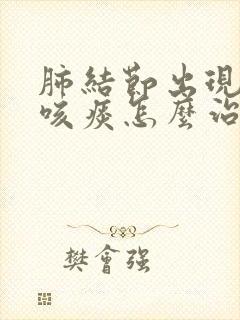 肺結節出現
咳痰怎麼治
樊會强